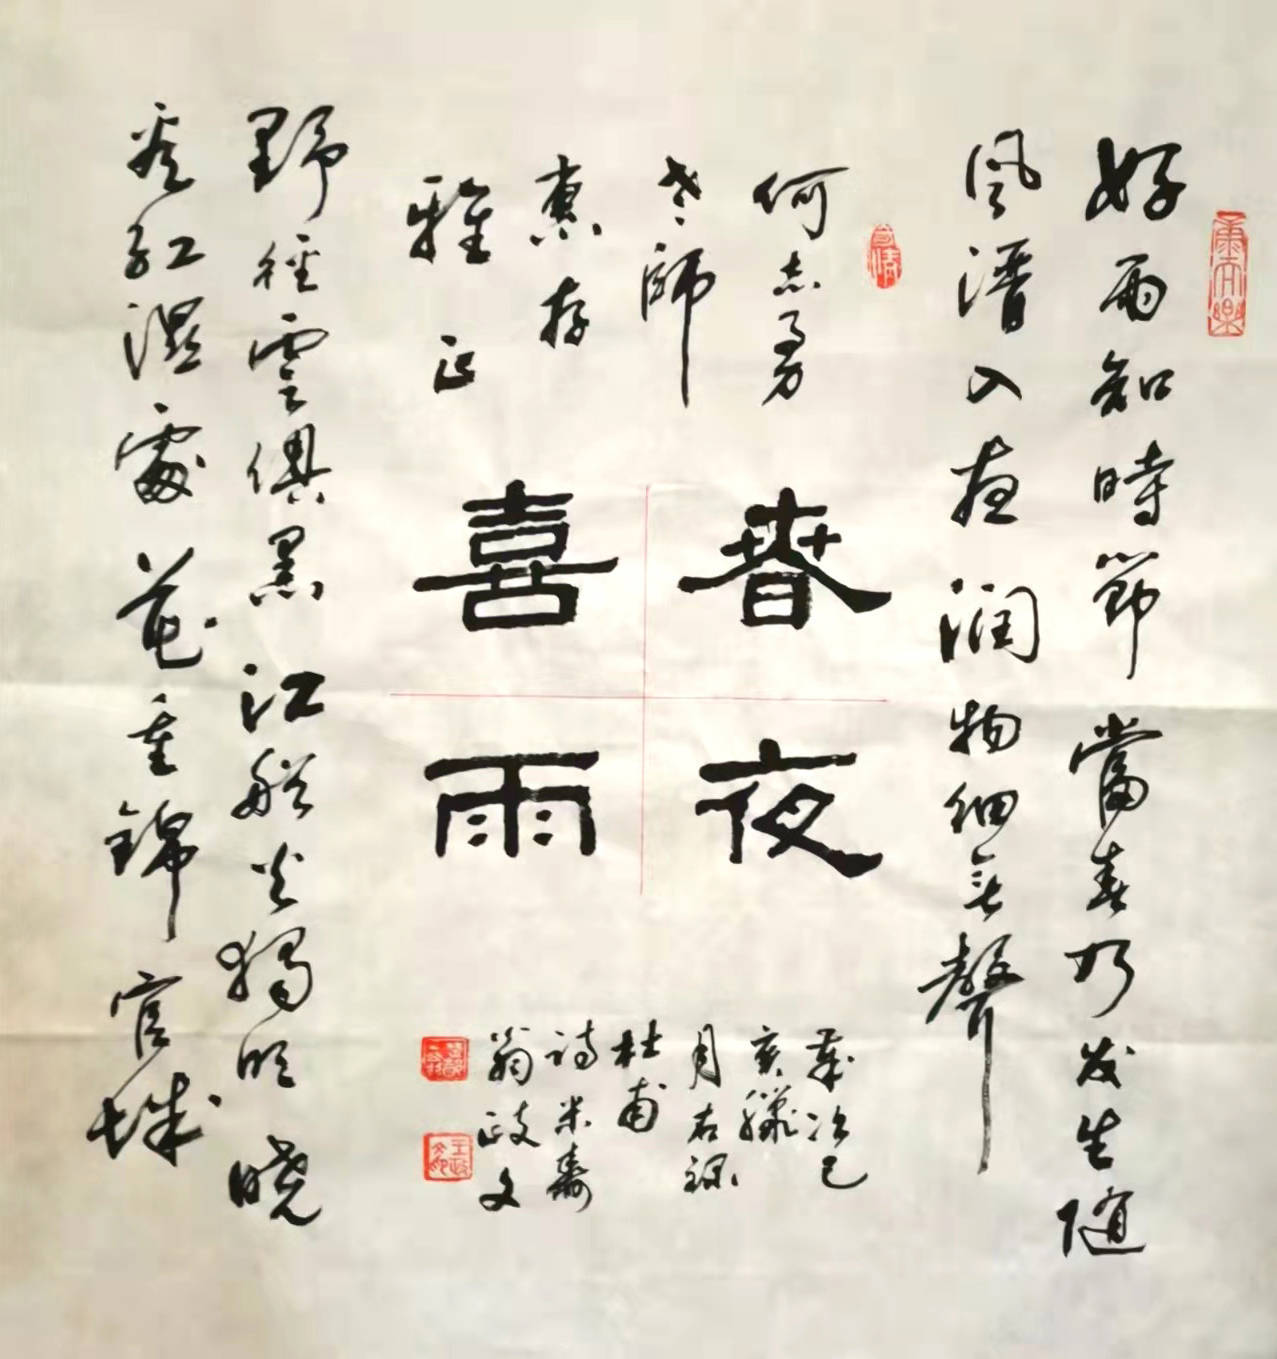 好雨知時節當春乃发生随
风潛入夜润物细無聲
何志勇
老師
惠存
雅正
春夜
喜雨
歲次己
亥臘
月右録
杜甫
詩米壽
翁政文
野徑雲俱黑江船火獨明曉
看紅濕處花重錦官城